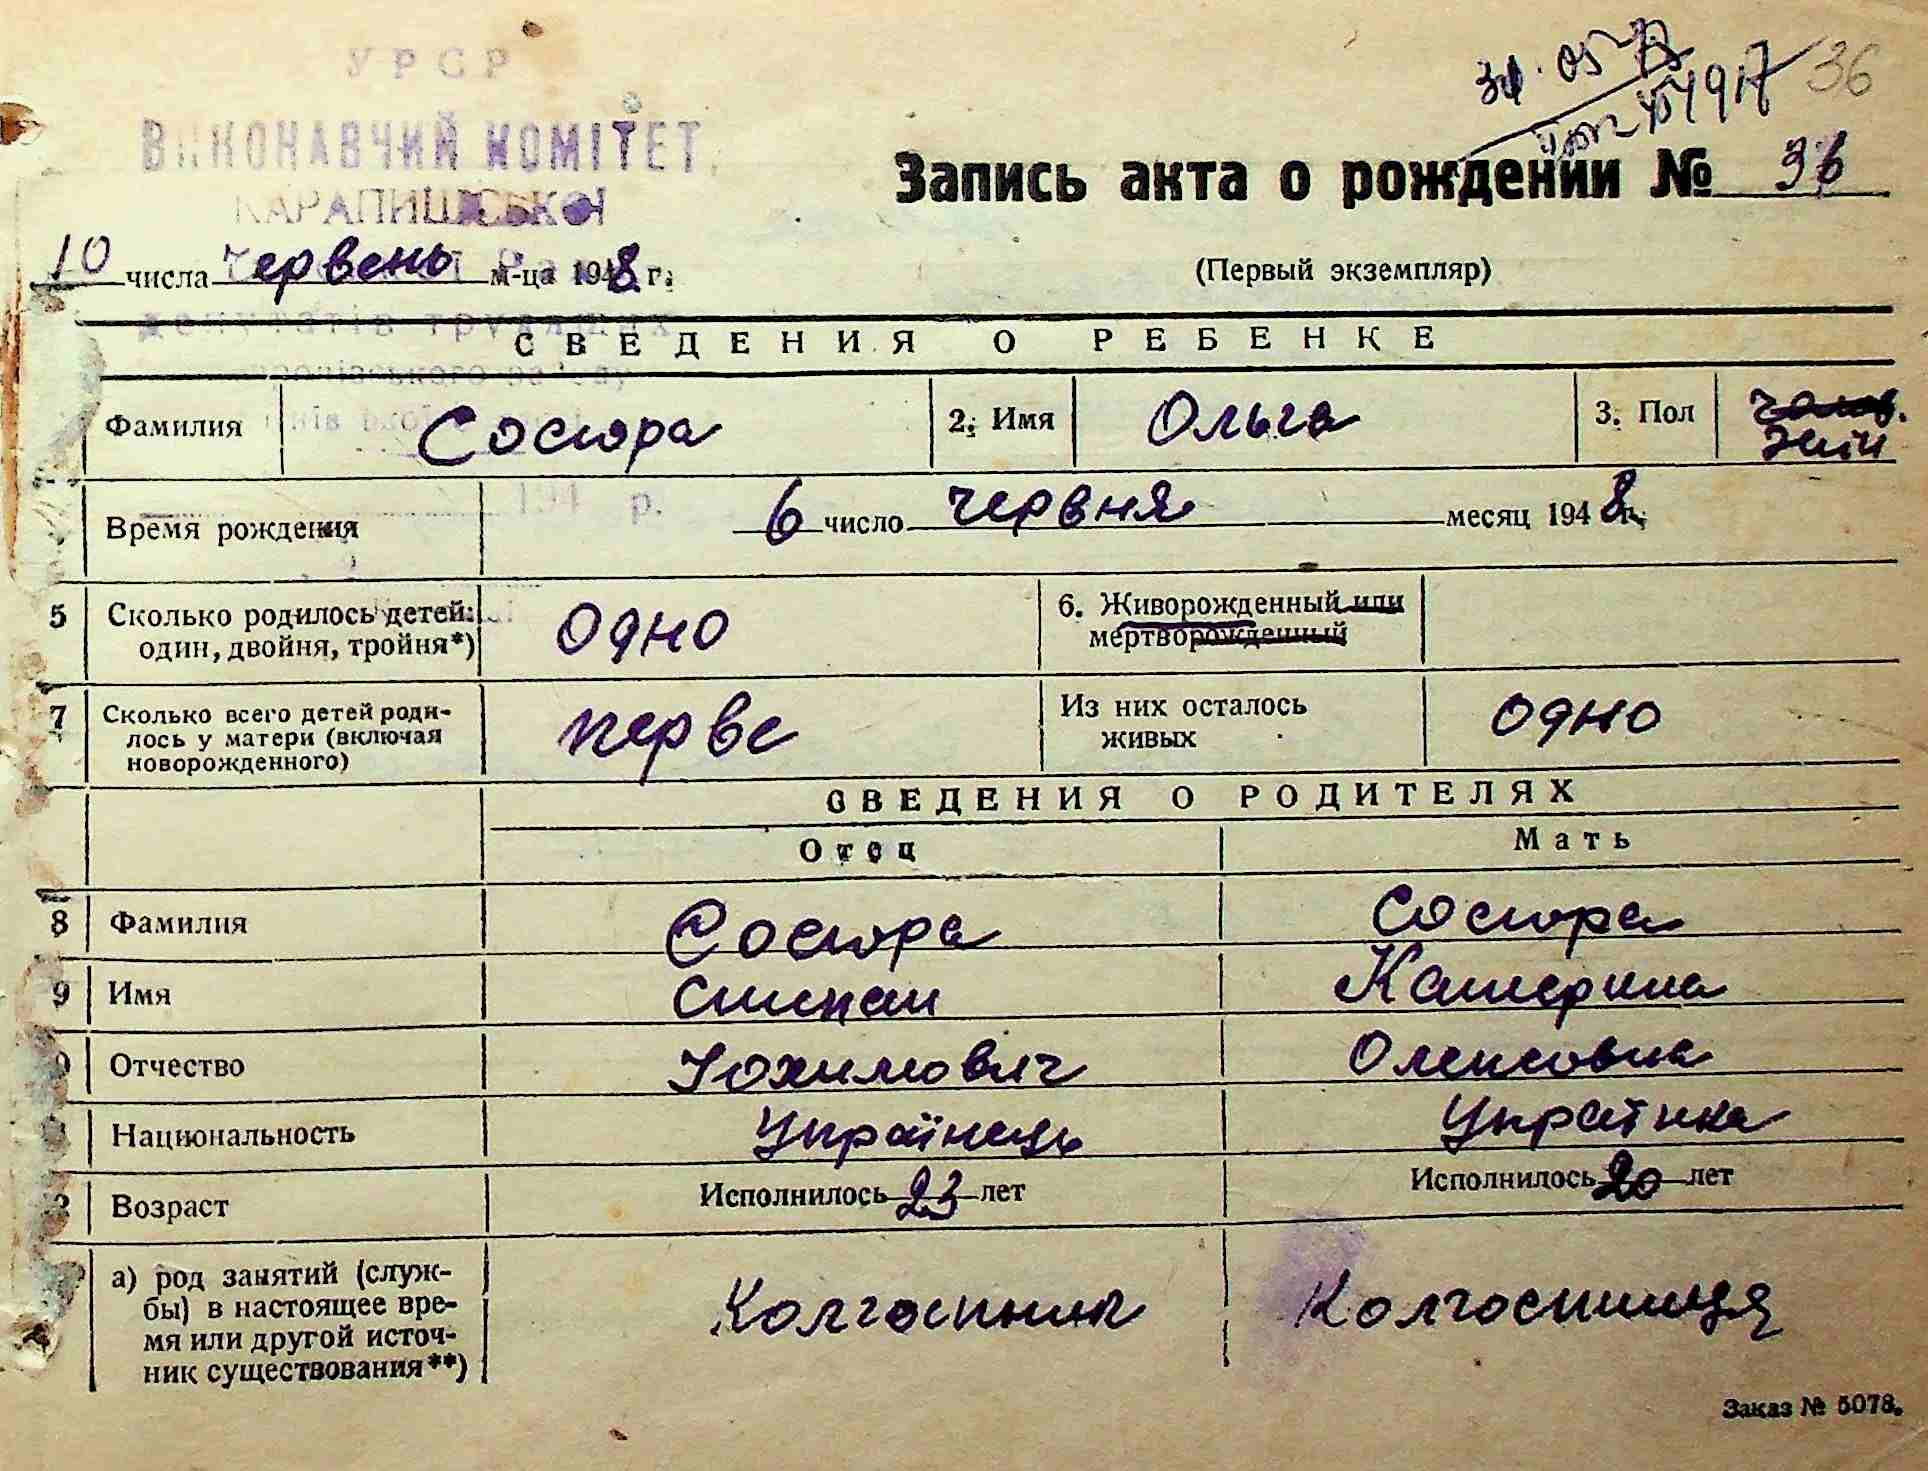 УРСР
ВИКОНАВЧИЙ КОМІТЕТ
КАРАПИШСЬКОЇ
36
Запись акта о рождении № 36
10 числа Червень м-ца 1948 г.
(Первый экземпляр)
депутатів трудящих
СВЕДЕНИЯ О РЕБЕНКЕ
Фамилия Сосюра 2. Имя Ольга 3. Пол чолов. жін
194 р.
Время рождения 6 число червня месяц 1948 г.
5 Сколько родилось детей: один, двойня, тройня*) одно 6. Живорожденный или мертворожденный
7 Сколько всего детей родилось у матери (включая новорожденного) перве Из них осталось живых одно
СВЕДЕНИЯ О РОДИТЕЛЯХ
Отец Мать
8 Фамилия Сосюра Сосюра
9 Имя Степан Катерина
Отчество Юхимович Олексовна
Национальность Українець Українка
Возраст Исполнилось 23 лет Исполнилось 20 лет
а) род занятий (служ-
бы) в настоящее вре-
мя или другой источ-
ник существования**)
Колгоспник Колгоспниця
Заказ № 5078.